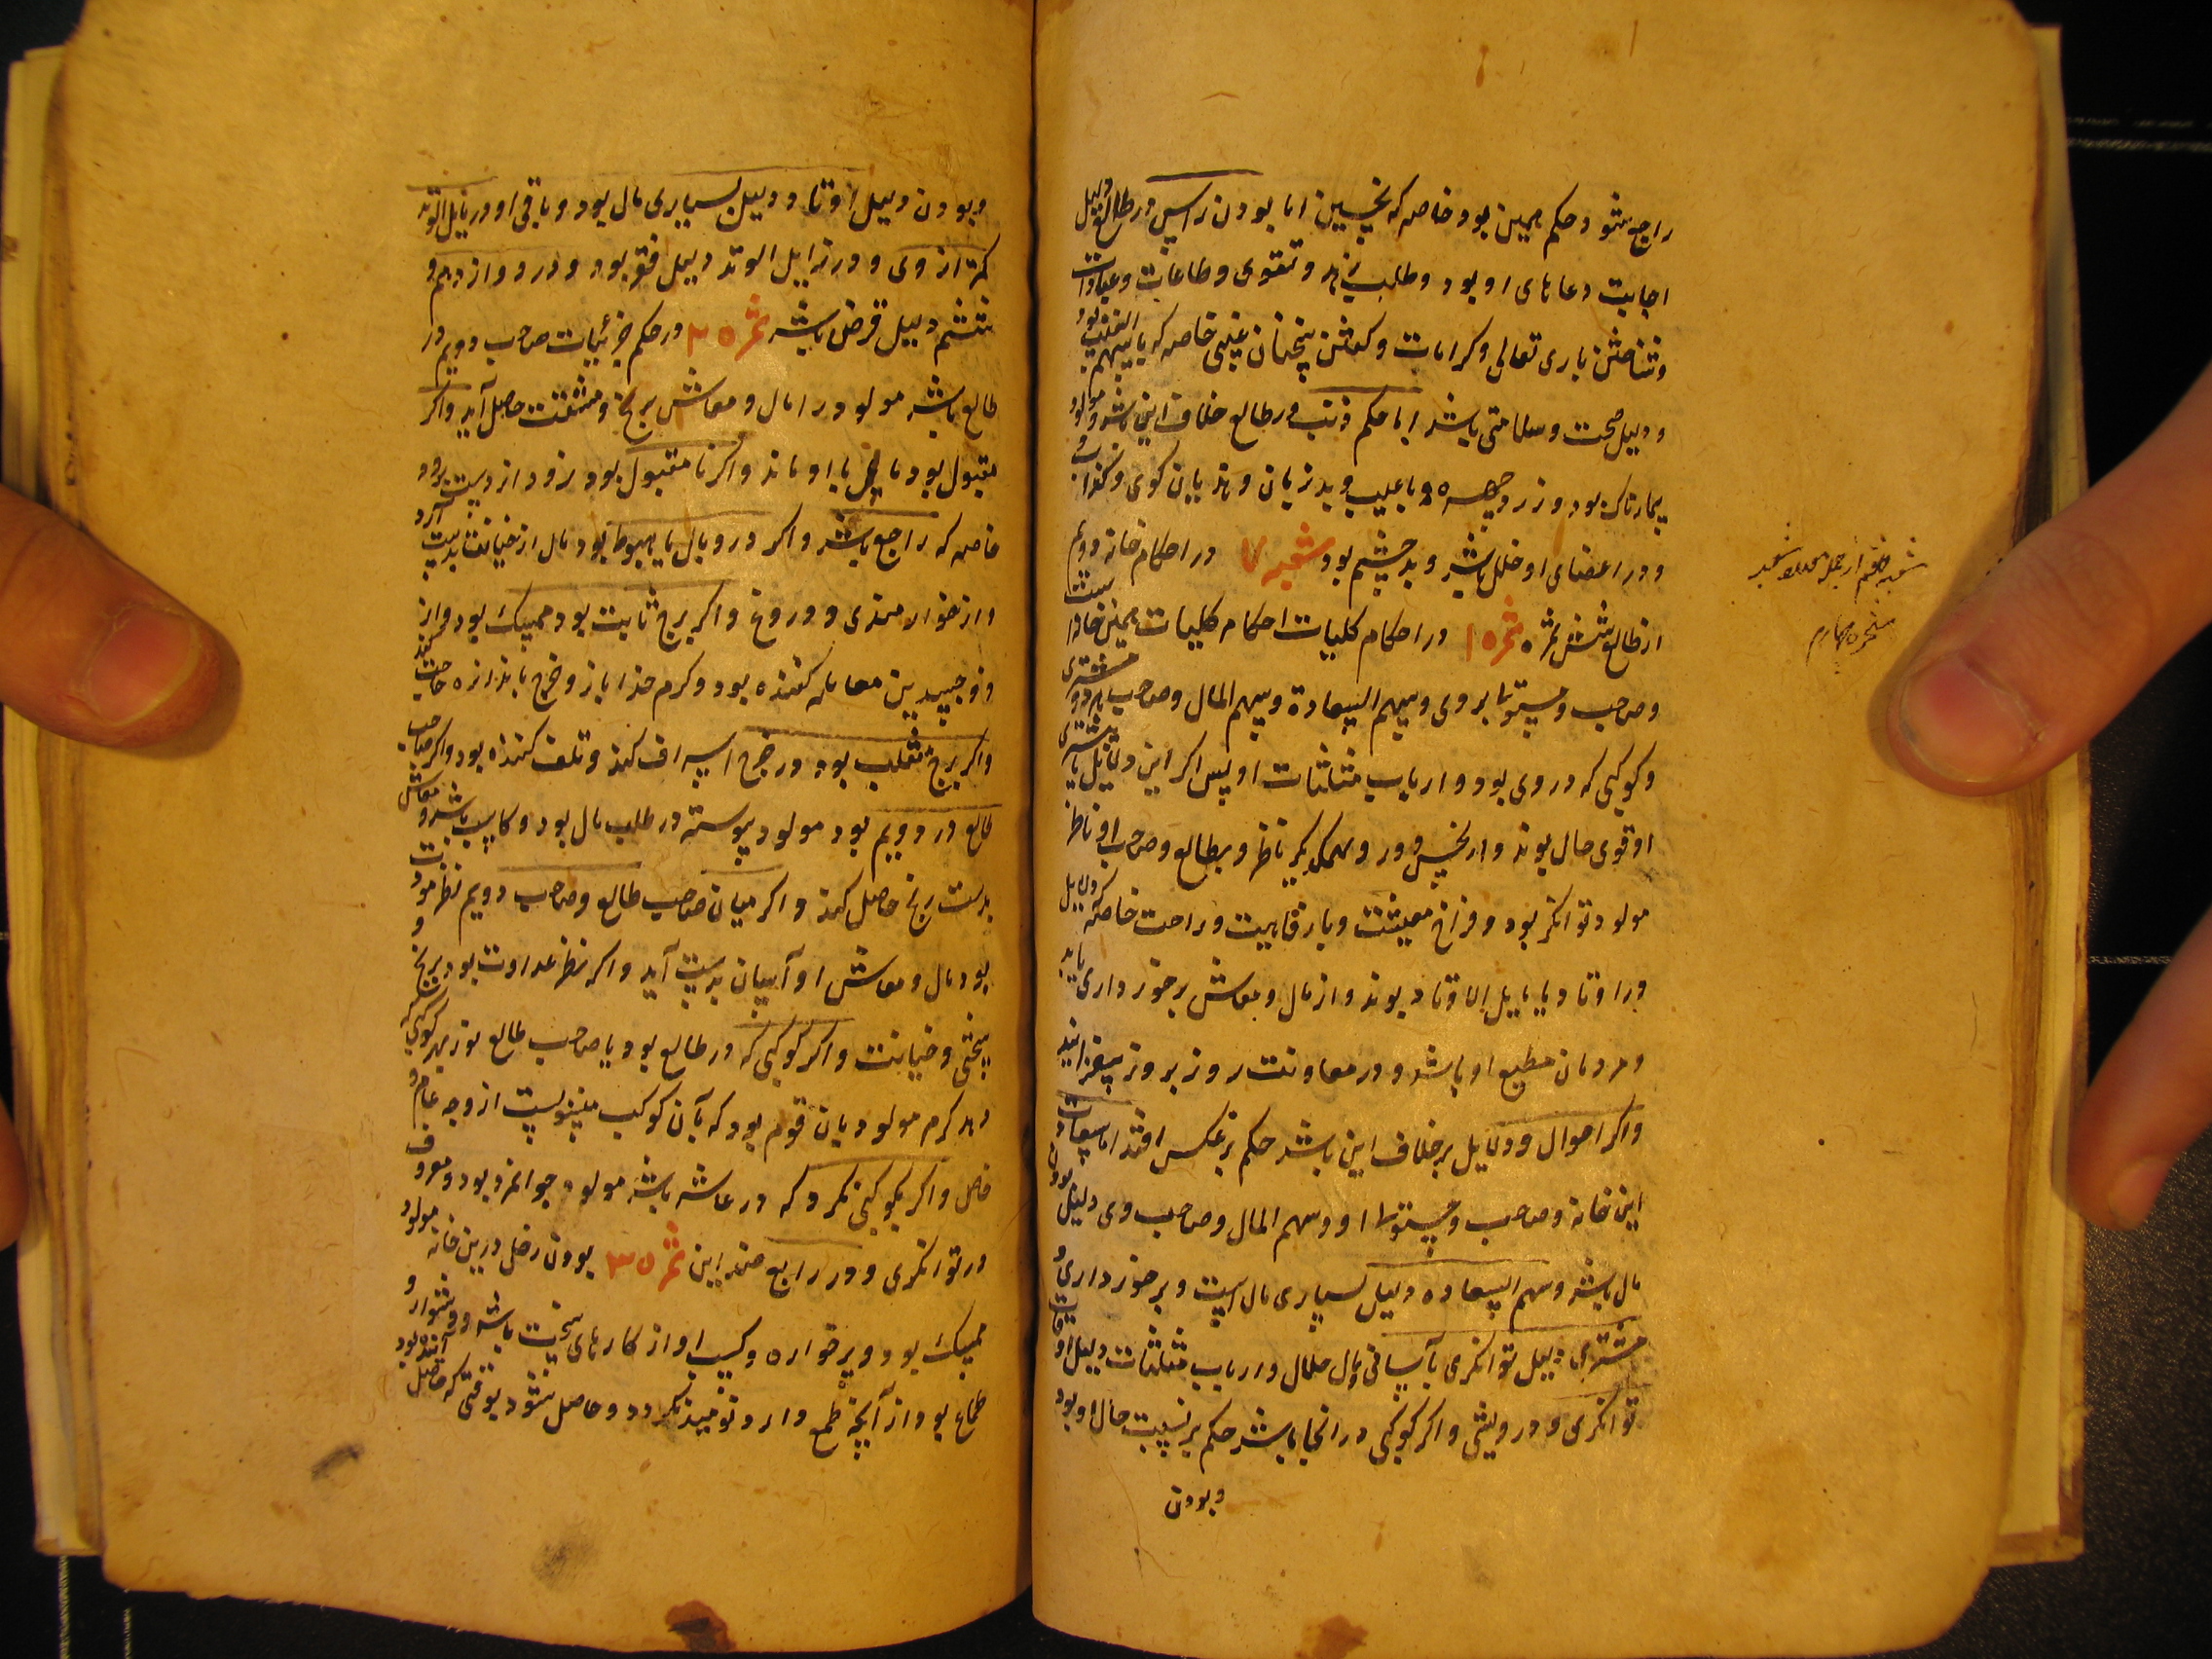 راجع شود حکم همین بود خاصه که نحسین اما بودن راس در طالع دلیل
اجابت دعاهای او بود و طلب زهد و تقوی و طاعات و عبادات
و شناختن باری تعالی و کرامات و کفتن سخنان غیبی خاصه که با سهم الغیب بود
و دلیل صحت و سلامتی باشد اما حکم ذنب در طالع خلاف این باشد و مولود
بیمارناک بود و زرد چهره و با عیب و بد زبان و هذیان کوی و کذاب
و در اعضای او خلل باشد و بد چشم بود شعبه ۷ در احکام خانه دویم
از طالع شش ثمره ثمره ۱ در احکام کلیات احکام کلیات همین خانه است
و صاحب و مستولی بر وی و سهم السعادة و سهم المال و صاحب هر دو و مشتری
و کوکبی که در وی بود و ارباب مثلثات او پس اکر این دلایل با مشتری
او قوی حال بوند و از نحس دور و بهمدیکر ناظر و بطالع و صاحب او ناظر
مولود توانکر بود و فراخ معیشت و با رفاهیت و راحت خاصه که دلایل
در اوتاد یا مایل الاوتاد بوند و از مال و معاش برخورداری یابد
و مردمان مطیع او باشد و در معاونت روز بروز بیفزایند
و اکر احوال و دلایل بر خلاف این باشد حکم بر عکس افتد اما سعادت
این خانه و صاحب و مستولی او و سهم المال و صاحب وی دلیل بودن
مال باشد و سهم السعاده دلیل بسیاری مال است و برخورداری و
مشتری دلیل توانکری بآسانی و مال حلال و ارباب مثلثات دلیل اوقات
توانکری و درویشی و اکر کوکبی در انجا باشد حکم بر نسبت حال او بود
و بودن
شعبه هفتم از جمله شعب
شجره چهارم
و بودن دلیل اوتاد دلیل بسیاری مال بود و باقی او و در مایل الوتد
کمتر از وی و در زایل الوتد دلیل فقر بود و در دوازدهم و
ششم دلیل قرض باشد ثمره ۲ در حکم جزئیات صاحب دویم در
طالع باشد مولود را مال و معاش برنج و مشقت حاصل آید و اکر
مقبول بود مال با او ماند و اکر نا مقبول بود زود از دست برود
خاصه که راجع باشد و اکر در وبال یا هبوط بود مال از خیانت بدست آرد
و از خوار مندی و دروغ و اکر برج ثابت بود ممسک بود و از
ذو جسدین معامله کننده بود و کرم خدا باز و خرج باندازه کند
و اکر برج منقلب بود در خرج اسراف کند و تلف کننده بود و اکر صاحب
طالع در دویم بود مولود پیوسته در طلب مال بود و کاسب باشد و معاش
بدست رنج حاصل کند و اکر میان صاحب طالع و صاحب دویم نظر مودت
بود مال و معاش او آسان بدست آید و اکر نظر عداوت بود برنج و
سختی و خیانت و اکر کوکبی که در طالع بود یا صاحب طالع نور بدو کوکبی که
دهد کرم مولود بان قوم بود که بآن کوکب منسوبست از وجه عام و
خاص و اکر بکوکبی نکرد که در عاشر باشد مولود جوانمرد بود و معروف
در توانکری و در رابع ضد این ثمره ۳ بودن زحل درین خانه مولود
ممسک بود و پرخواره و کسب او از کارهای سخت باشد و دشوار و
طماع بود از آنچه طمع دارد نومید نکردد و حاصل نشود بوقتی که حاصل آینده بود